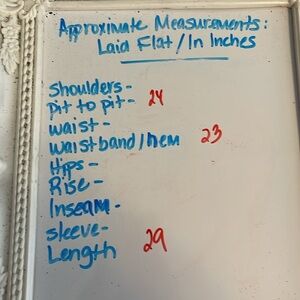 Approximate Measurements:
Laid Flat/In Inches
Shoulders-
Pit to pit- 24
waist-
waistband/hem 23
Hips-
Rise-
Inseam-
sleeve-
Length 29